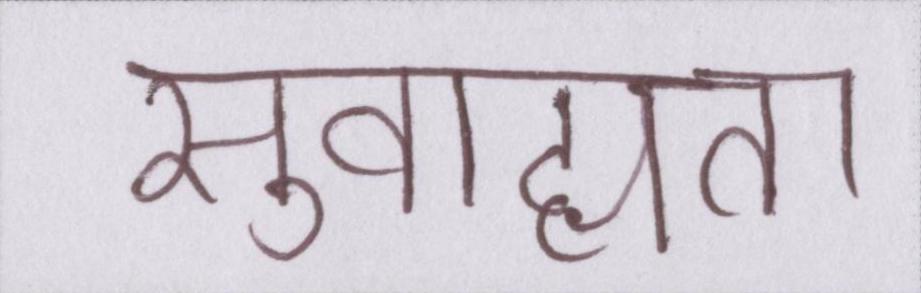 सुवाह्यता